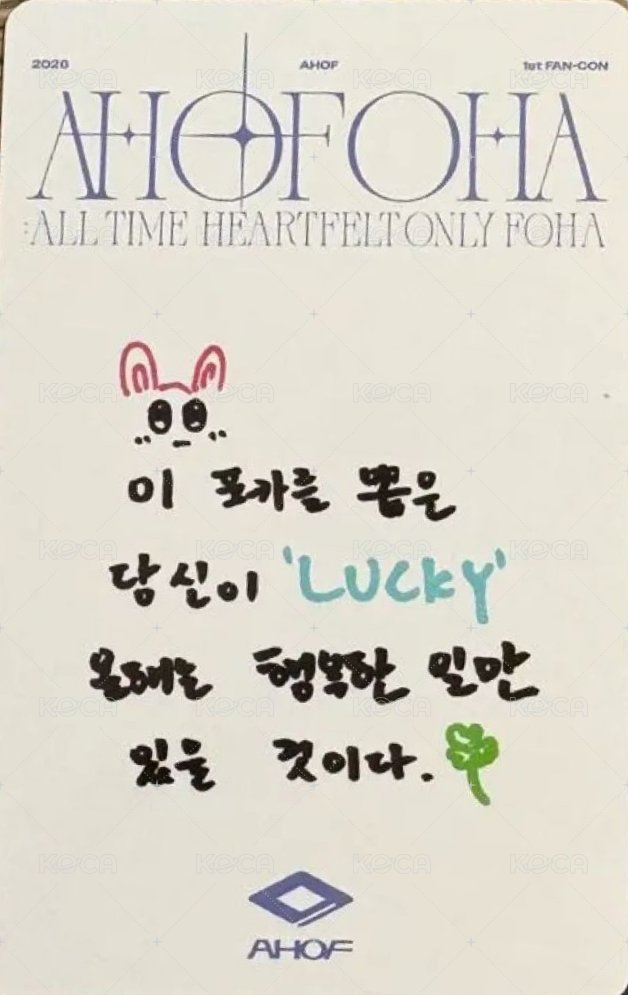 2026 AHOF 1st FAN-CON
AHOFOHA
:ALL TIME HEARTFELT ONLY FOHA
이 포카를 뽑은
당신이 'LUCKY'
올해는 행복한 일만
있을 것이다.
AHOF
KOCA